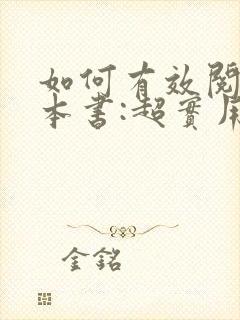 如何有效閱
本書:超實用
金銘